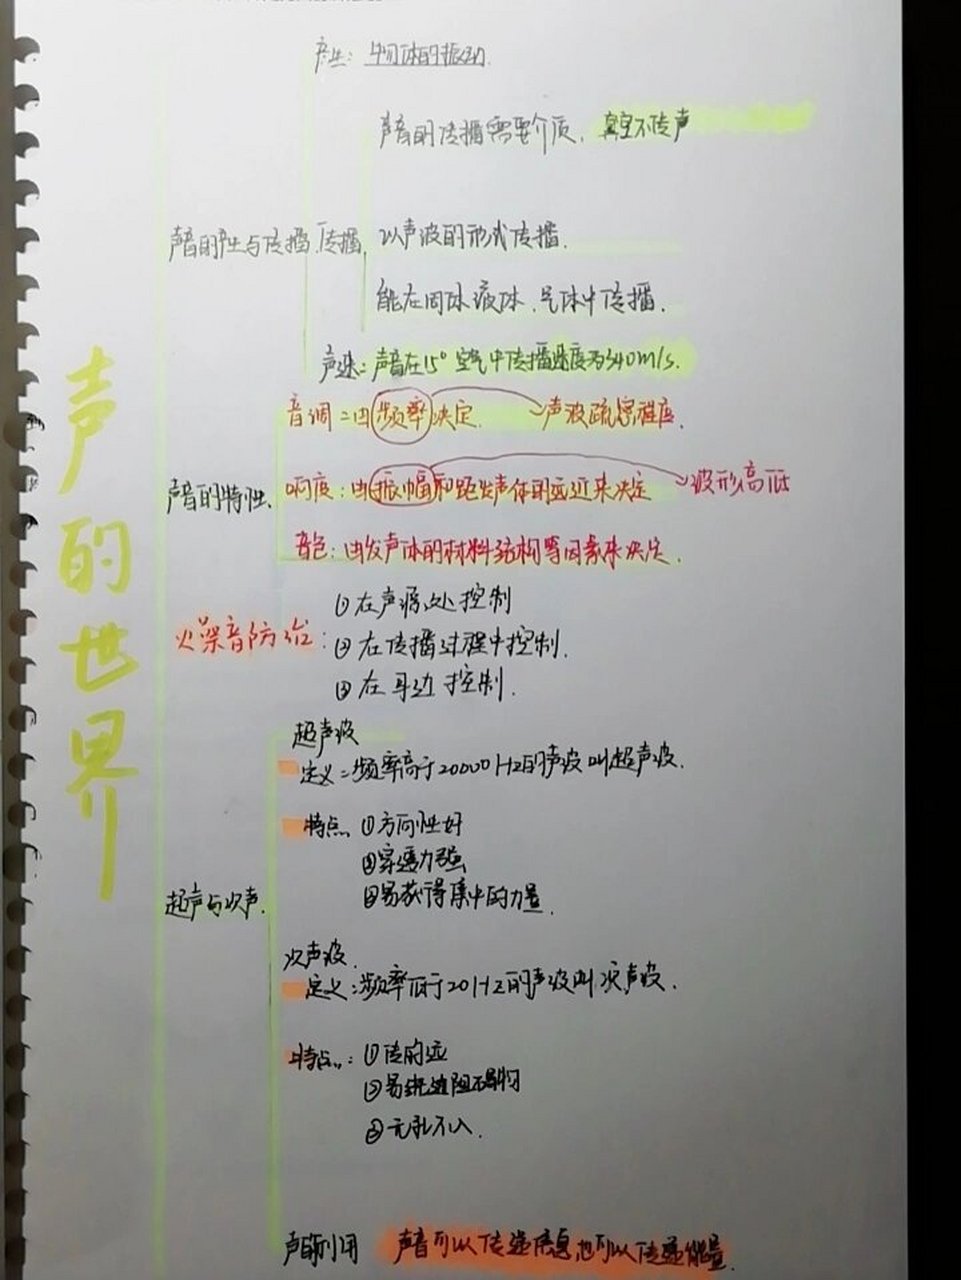 声的世界
产生：物体的振动.
声音的传播需要介质，真空不传声
声音的产生与传播 传播
以声波的形式传播.
能在固体液体、气体中传播.
声速：声音在15°空气中传播速度为340m/s.
音调：由频率决定. 声波疏密程度.
声音的特性.
响度：由振幅和距发声体的远近来决定 波形高低
音色：由发声体的材料结构等因素来决定.
噪音防治：
①在声源处控制
②在传播过程中控制.
③在耳边控制.
超声与次声.
超声波
定义：频率高于20000Hz的声波叫超声波.
特点、①方向性好
②穿透力强
③易获得集中的力量.
次声波.
定义：频率低于20Hz的声波叫次声波.
特点：①传的远
②易绕过阻碍物
③无孔不入.
声的利用 声音可以传递信息,也可以传递能量.